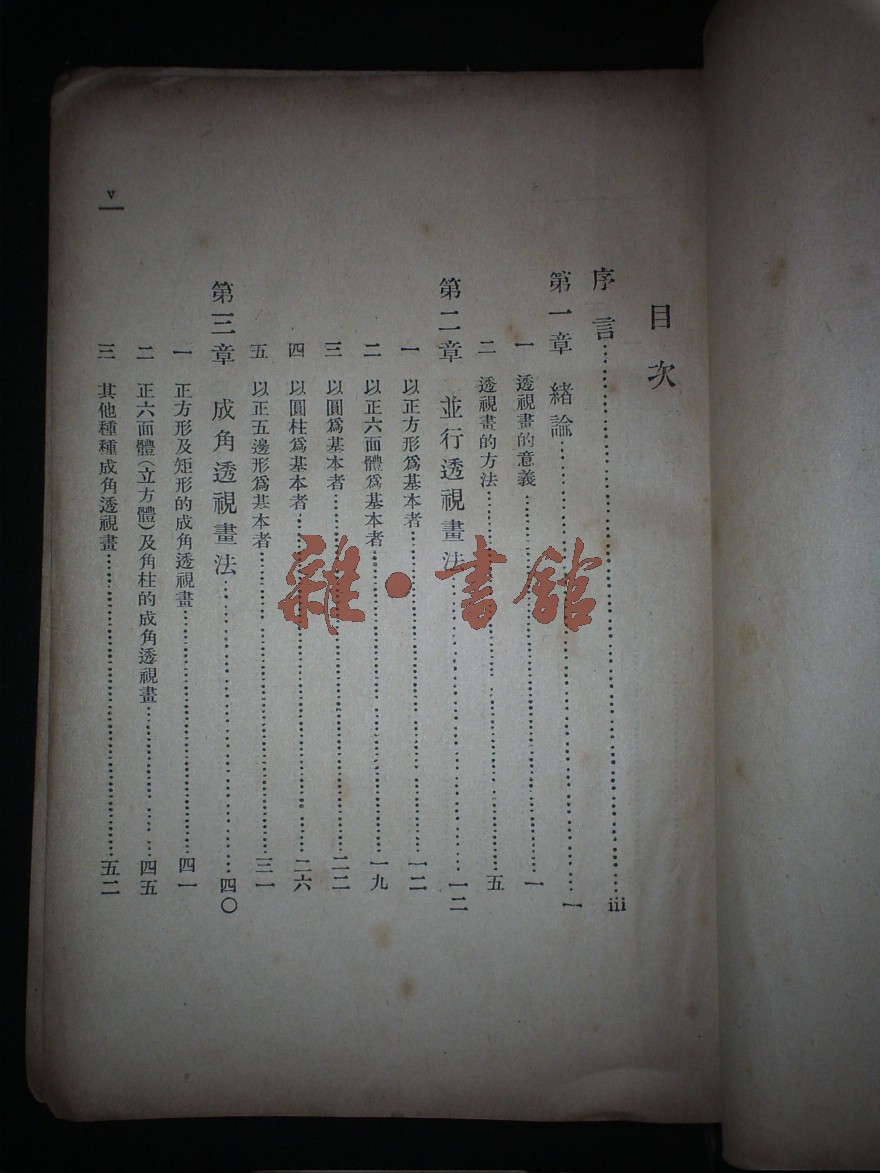 目次
序言……iii
第一章 緒論……一
一 透視畫的意義……一
二 透視畫的方法……五
第二章 並行透視畫法……一二
一 以正方形爲基本者……一二
二 以正六面體爲基本者……一九
三 以圓爲基本者……二二
四 以圓柱爲基本者……二六
五 以正五邊形爲基本者……三一
第三章 成角透視畫法……四〇
一 正方形及矩形的成角透視畫……四一
二 正六面體(立方體)及角柱的成角透視畫……四五
三 其他種種成角透視畫……五二
v
雜·書館